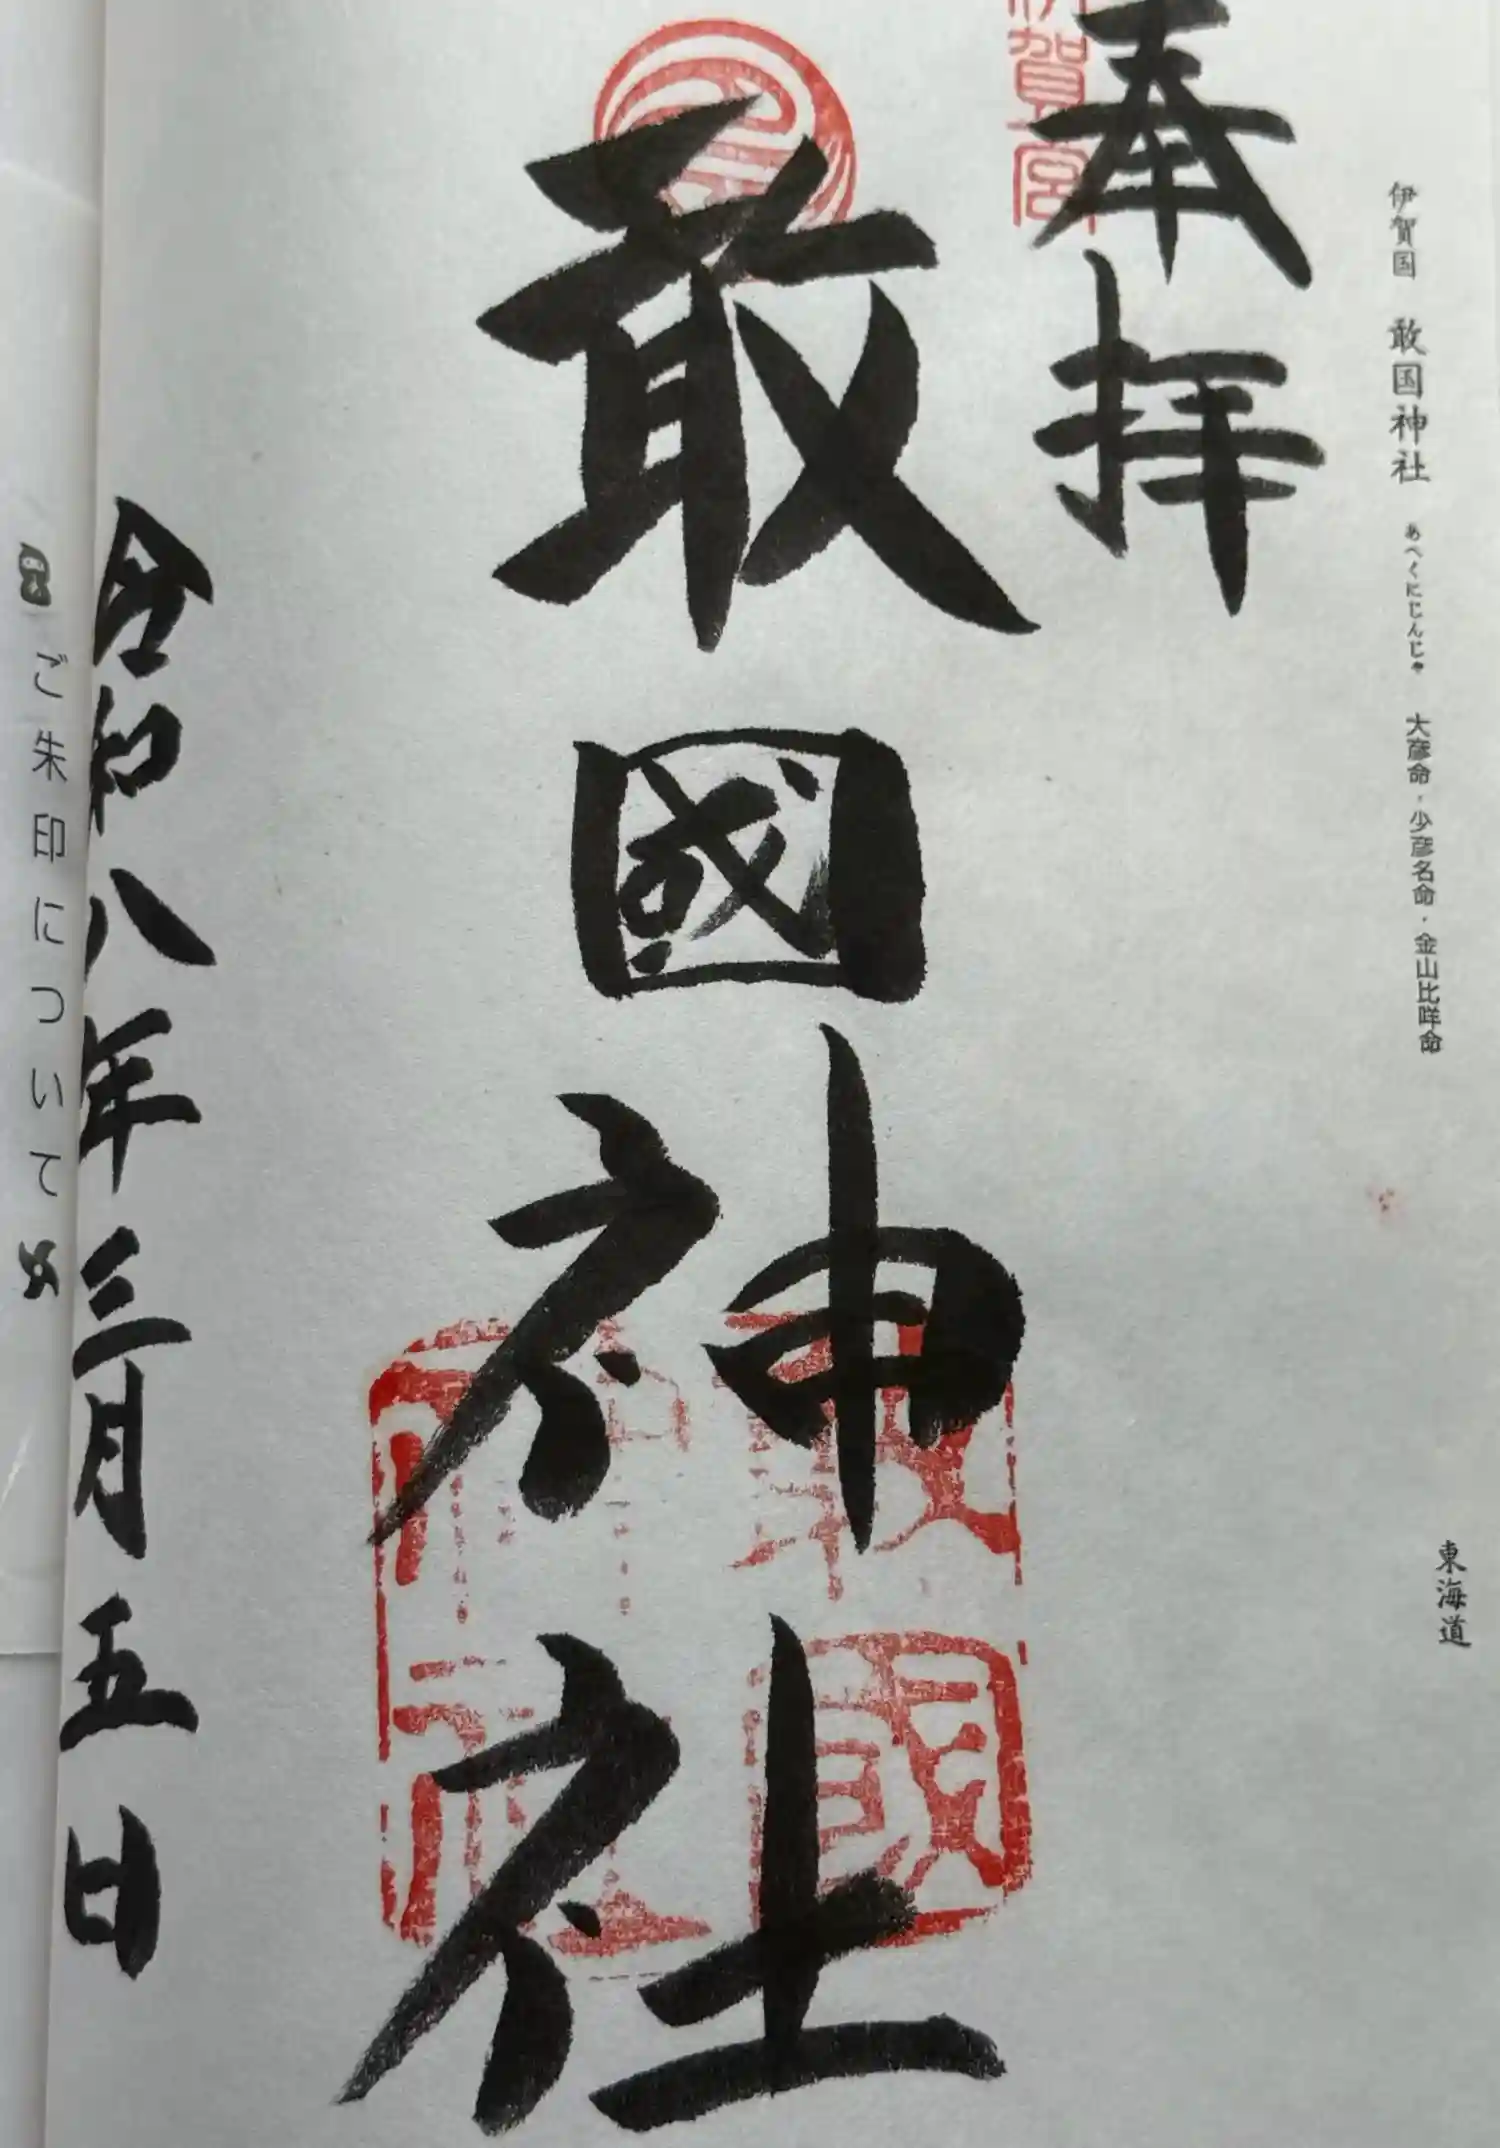 伊賀国 敢国神社 あへくにじんじゃ 大彦命・少彦名命・金山比咩命
東海道
奉拝
賀一宮
敢國神社
令和八年三月五日
ご朱印について